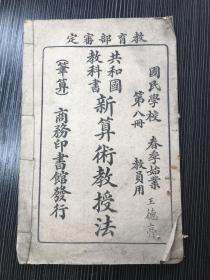 教育部審定
國民學校 春季始業
第八冊 教員用
王德亮
共和國
教科書
新算術教授法
(筆算)
商務印書館發行